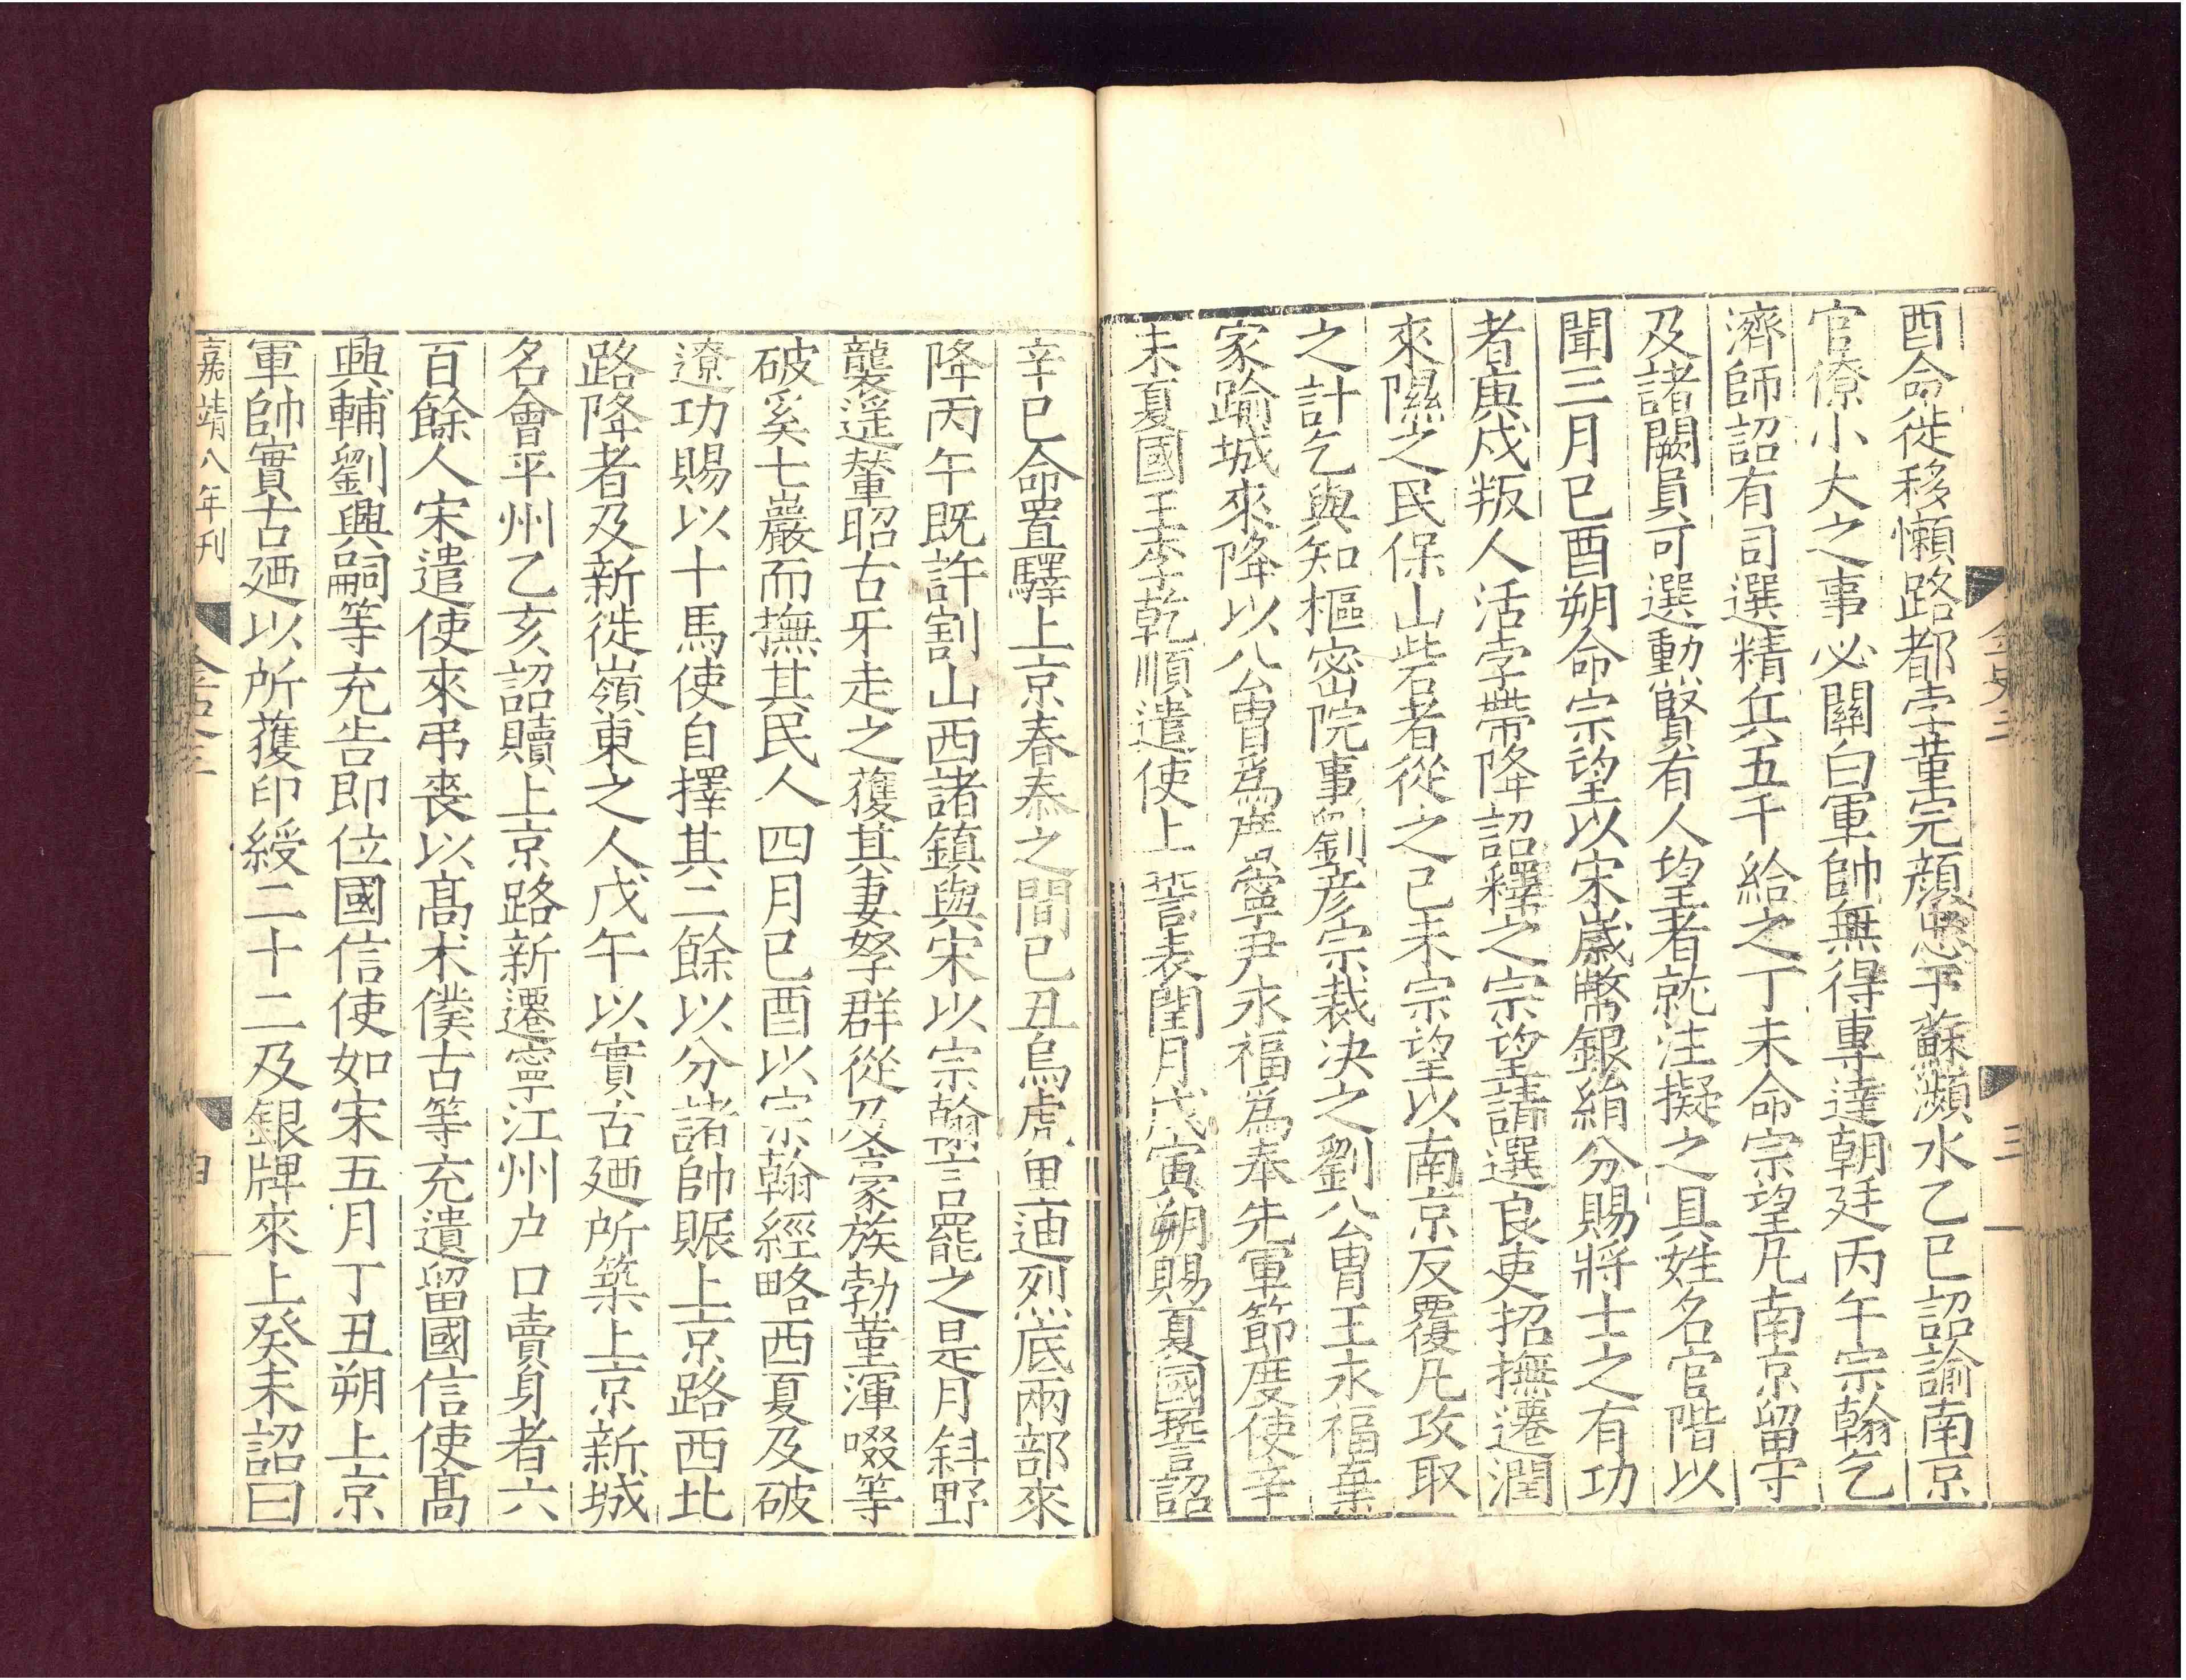 酉命徙移懶路都孛菫完顏忠于蘇瀕水乙巳詔諭南京
官僚小大之事必關白軍帥無得專達朝廷丙午宗翰乞
濟師詔有司選精兵五千給之丁未命宗望凡南京留守
及諸闕員可選勳賢有人望者就注擬之具姓名官階以
聞三月巳酉朔命宗望以宋歲幣銀絹分賜將士之有功
者庚戌叛人活孛帶降詔釋之宗望請選良吏招撫遷潤
來隰之民保山砦者從之己未宗望以南京反覆凡攻取
之計乞與知樞密院事劉彦宗裁決之劉公胄王永福棄
家踰城來降以公胄爲廣寧尹永福爲奉先軍節度使辛
未夏國王李乾順遣使上誓表閏月戊寅朔賜夏國誓詔
金史三
三
辛巳命置驛上京春泰之間己丑烏虎里迪烈底兩部來
降丙午既許割山西諸鎮與宋以宗翰言罷之是月斜野
襲遥輦昭古牙走之獲其妻孥群從及豪族勃菫渾啜等
破奚七巖而撫其民人四月巳酉以宗翰經略西夏及破
遼功賜以十馬使自擇其二餘以分諸帥賑上京路西北
路降者及新徙嶺東之人戊午以實古廼所築上京新城
名會平州乙亥詔贖上京路新遷寧江州户口賣身者六
百餘人宋遣使來弔喪以高术僕古等充遺留國信使高
興輔劉興嗣等充告即位國信使如宋五月丁丑朔上京
軍帥實古廼以所獲印綬二十二及銀牌來上癸未詔曰
嘉靖八年刊
金史三
四